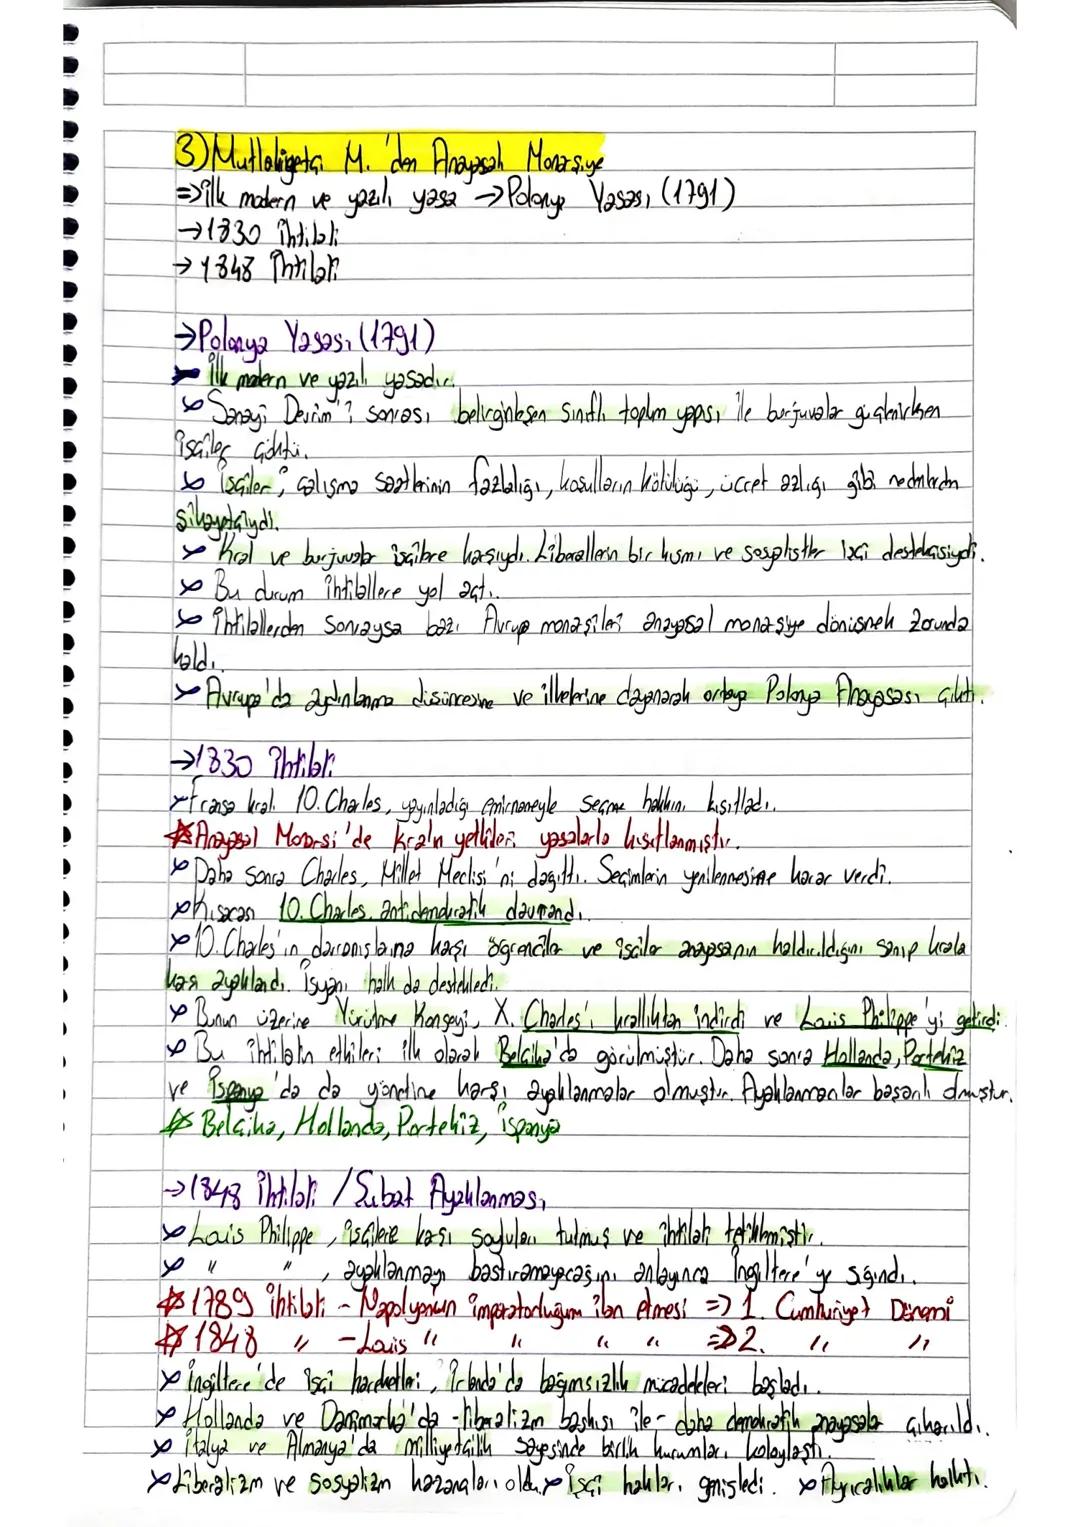 3) Mutlakiyetçi M. 'den Anayasal Monarşiye
=> ilk modern ve yazılı yasa → Polonya Yasası (1791)
→ 1830 ihtilali
→ 1848 ihtilali
→ Polonya Yasası (1791)
İlk modern ve yazılı yasadır.
Sanayi Devrimi sonrası belirginleşen sınıflı toplum yapısı ile burjuvalar güçlenirken
işçiler çöktü.
İşçiler; çalışma saatlerinin fazlalığı, koşulların kötülüğü, ücret azlığı gibi nedenlerden
şikayetçiydi.
Kral ve burjuvalar işçilere karşıydı. Liberallerin bir kısmı ve sosyalistler işçi destekçisiydi.
Bu durum ihtilallere yol açtı.
İhtilallerden sonraysa bazı Avrupa monarşileri anayasal monarşiye dönüşmek zorunda
kaldı.
Avrupa'da aydınlanma düşüncesine ve ilkelerine dayanarak ortaya Polonya Anayasası çıktı.
→ 1830 ihtilali
Fransa kralı 10. Charles, yayınladığı emirnameyle seçme hakkını kısıtladı.
Anayasal Monarşi'de kralın yetkileri yasalarla kısıtlanmıştır.
Daha sonra Charles, Millet Meclisi'ni dağıttı. Seçimlerin yenilenmesine karar verdi.
Kısacası 10. Charles antidemokratik davrandı.
10. Charles'ın davranışlarına karşı öğrenciler ve işçiler anayasanın kaldırıldığını sanıp krala
karşı ayaklandı. İsyanı halk da destekledi.
Bunun üzerine Yürütme Konseyi, X. Charles'ı krallıktan indirdi ve Louis Philippe'yi getirdi.
Bu ihtilalin etkileri ilk olarak Belçika'da görülmüştür. Daha sonra Hollanda, Portekiz
ve İspanya'da da yönetime karşı ayaklanmalar olmuştur. Ayaklanmalar başarılı olmuştur.
Belçika, Hollanda, Portekiz, ispanya
→ 1848 ihtilali / Şubat Ayaklanması
Louis Philippe, işçilere karşı soyluları tutmuş ve ihtilali tetiklemiştir.
" ", ayaklanmayı bastıramayacağını anlayınca İngiltere'ye sığındı.
1789 ihtilali - Napolyonun imparatorluğunu ilan etmesi => 1. Cumhuriyet Dönemi
1848 " - Louis " " " " => 2. " "
İngiltere'de işçi hareketleri, İrlanda'da bağımsızlık mücadeleleri başladı.
Hollanda ve Danimarka'da - liberalizm baskısı ile - daha demokratik anayasalar çıkarıldı.
İtalya ve Almanya'da milliyetçilik sayesinde birlik kurumları kolaylaştı.
Liberalizm ve sosyalizm kazançları oldu. İşçi hakları genişledi. Ayrıcalıklar kalktı.